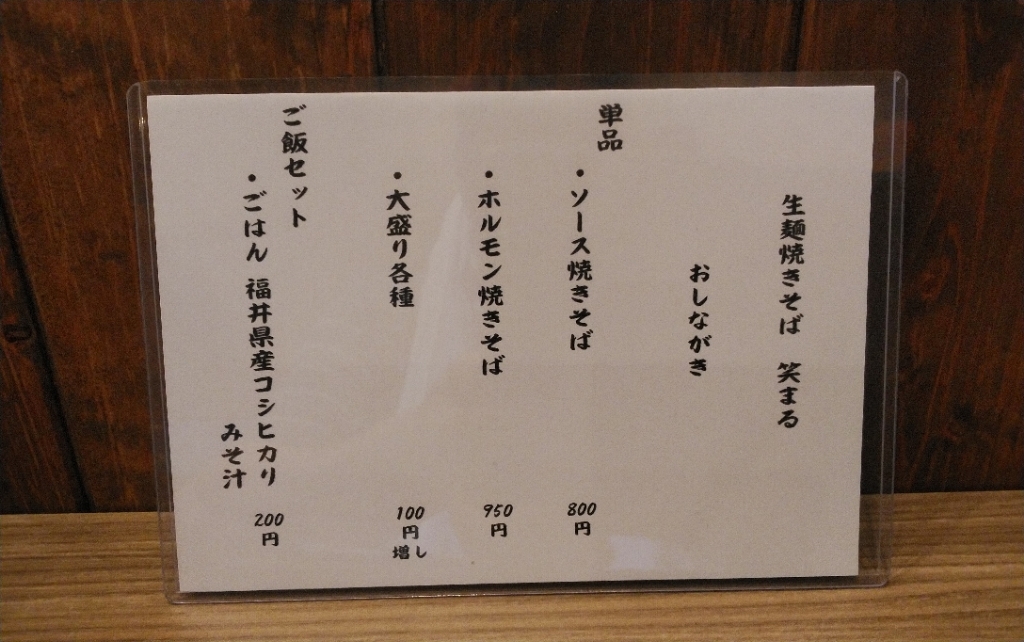 生麺焼きそば　笑まる
おしながき
単品
・ソース焼きそば 800円
・ホルモン焼きそば 950円
・大盛り各種 100円増し
ご飯セット
・ごはん 福井県産コシヒカリ
みそ汁 200円